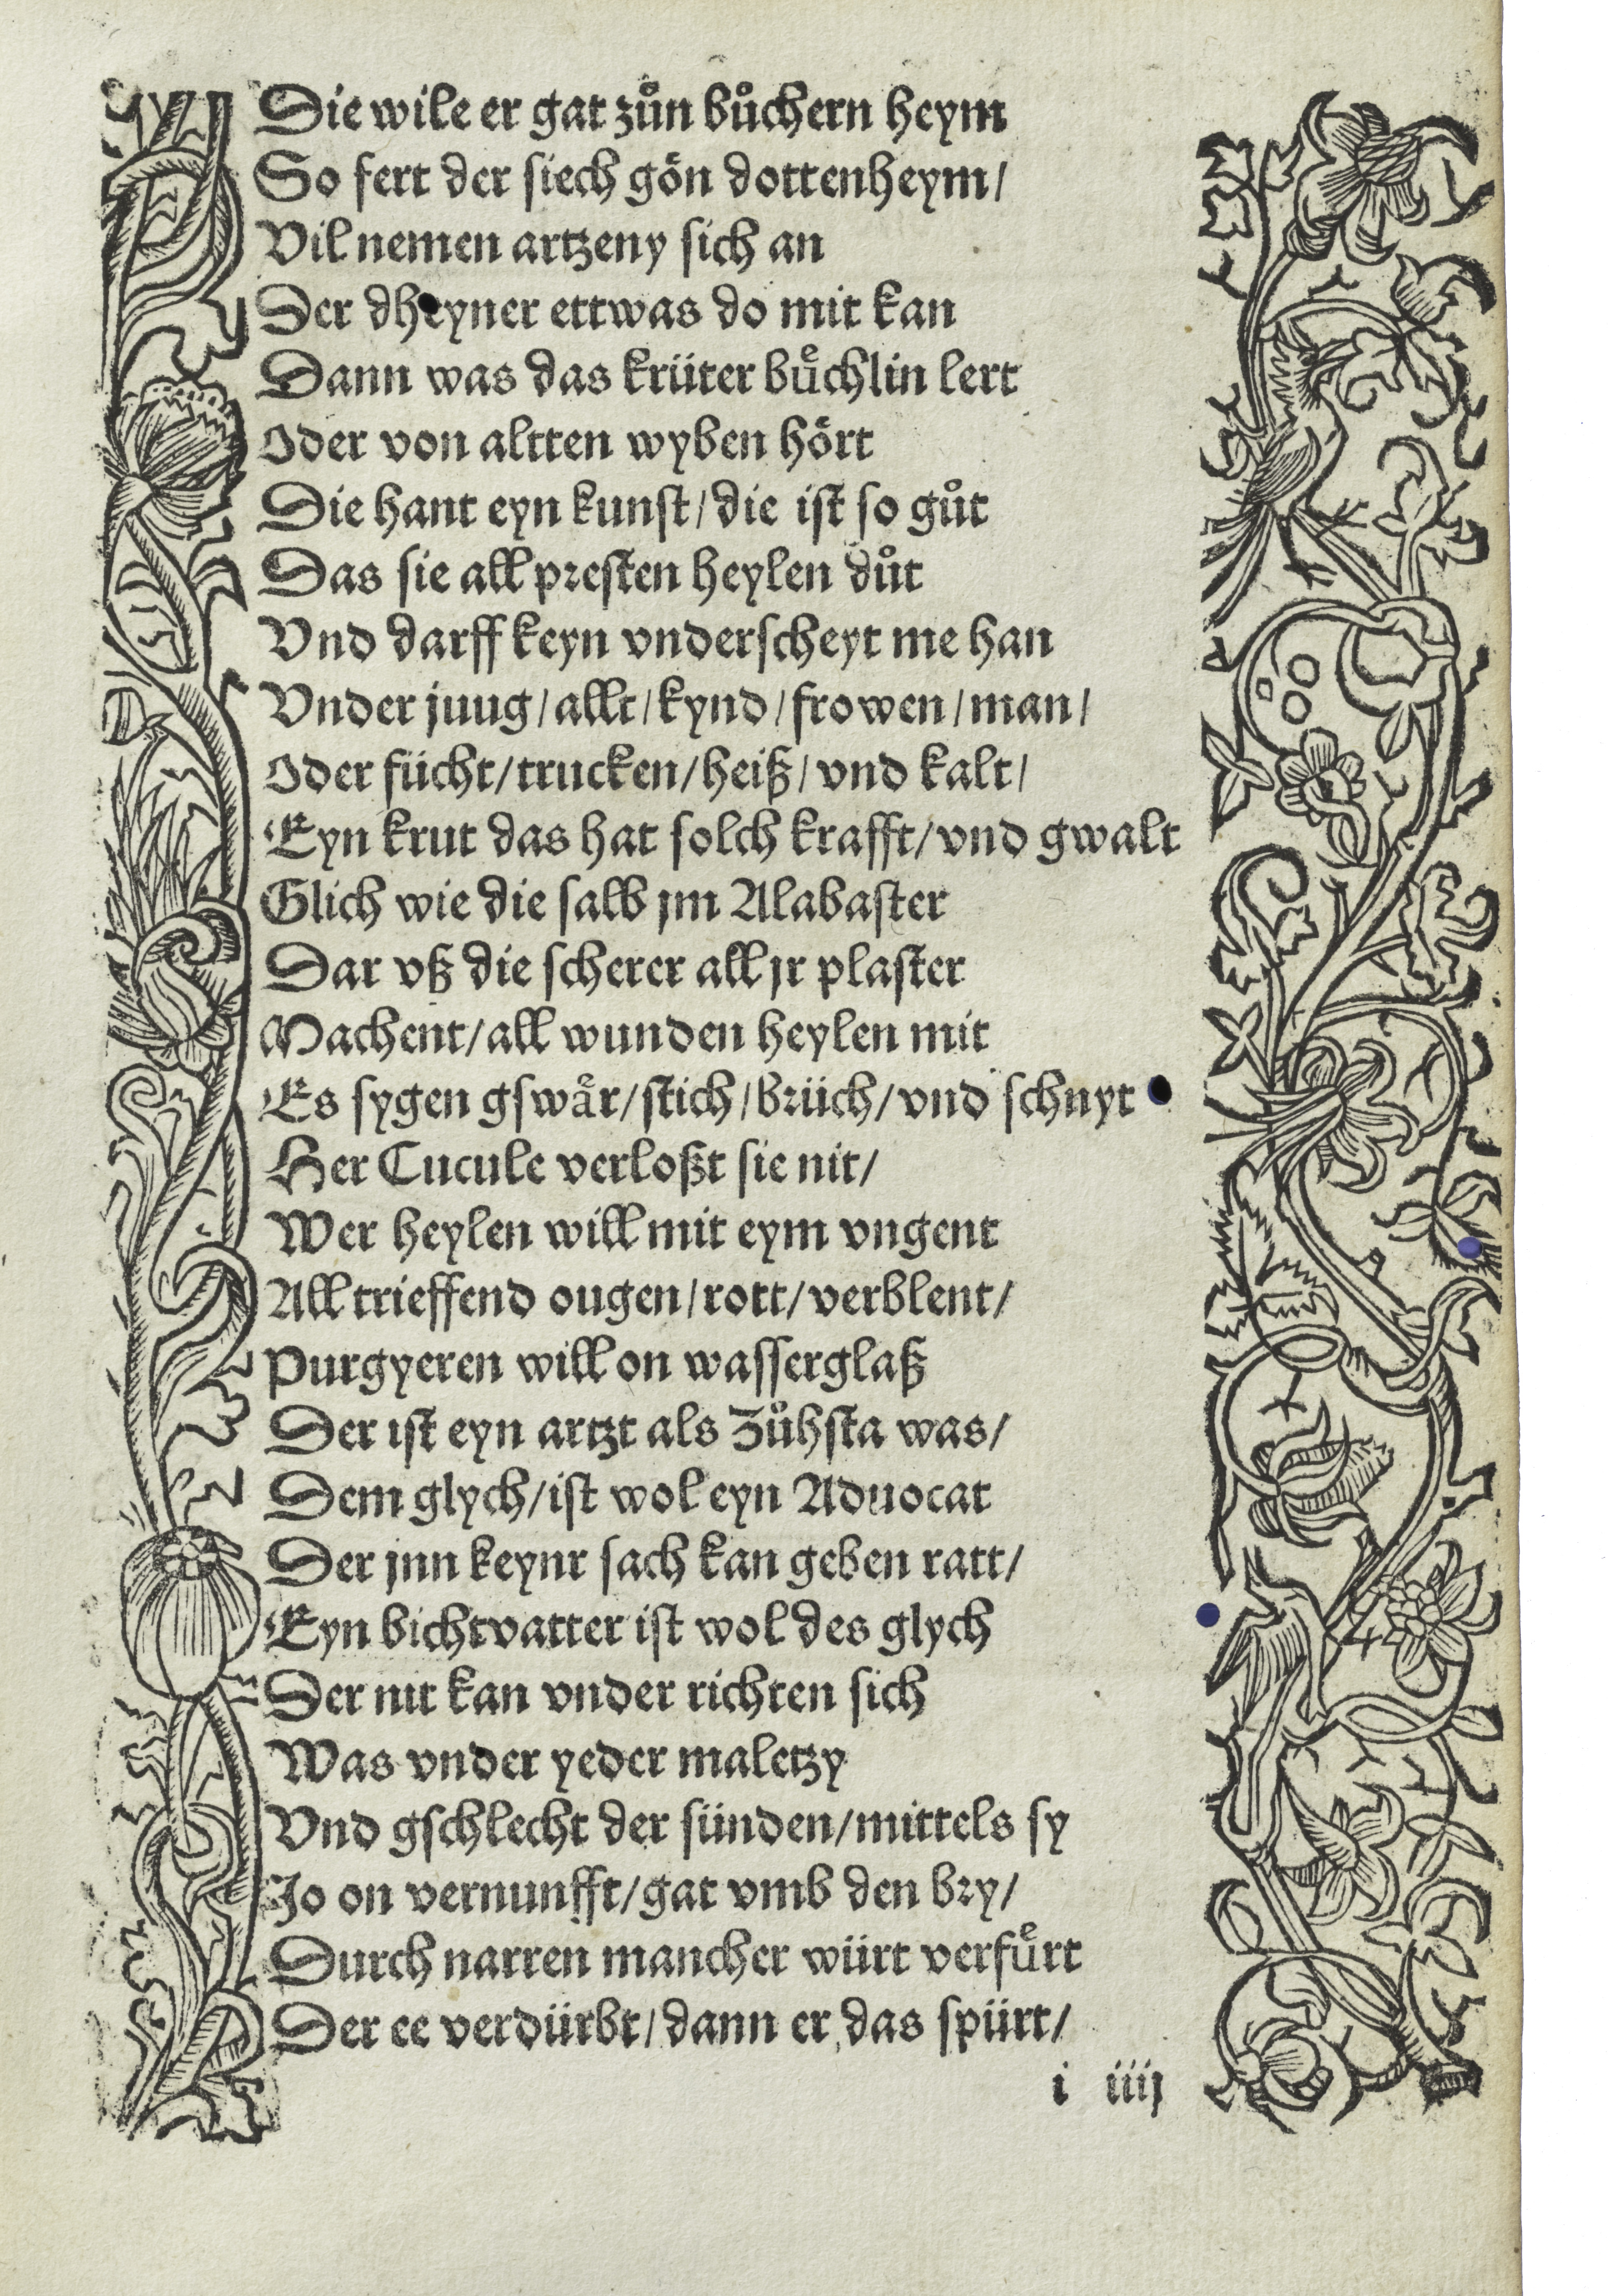 Die wile er gat zuͦn buͦchern heym
So fert der siech goͤn dottenheym/
Vil nemen artzeny sich an
Der dheyner ettwas do mit kan
Dann was das krüter buͤchlin lert
Oder von altten wyben hoͤrt
Die hant eyn kunst/die ist so guͦt
Das sie all presten heylen duͦt
Vnd darff keyn vnderscheyt me han
Vnder juug/allt/kynd/frowen/man/
Oder fücht/trucken/heiß/vnd kalt/
Eyn krut das hat solch krafft/vnd gwalt
Glich wie die salb jm Alabaster
Dar vß die scherer all jr plaster
Machent/all wunden heylen mit
Es sygen gswaͤr/stich/brüch/vnd schnyt
Her Cucule verloßt sie nit/
Wer heylen will mit eym vngent
All trieffend ougen/rott/verblent/
Purgyeren will on wasserglaß
Der ist eyn artzt als Zuͦhsta was/
Dem glych/ist wol eyn Aduocat
Der jnn keynr sach kan geben ratt/
Eyn bichtvatter ist wol des glych
Der nit kan vnder richten sich
Was vnder yeder maletzy
Vnd gschlecht der sünden/mittels sy
Jo on vernunfft/gat vmb den bry/
Durch narren mancher würt verfuͤrt
Der ee verdürbt/dann er das spürt/
i iiij